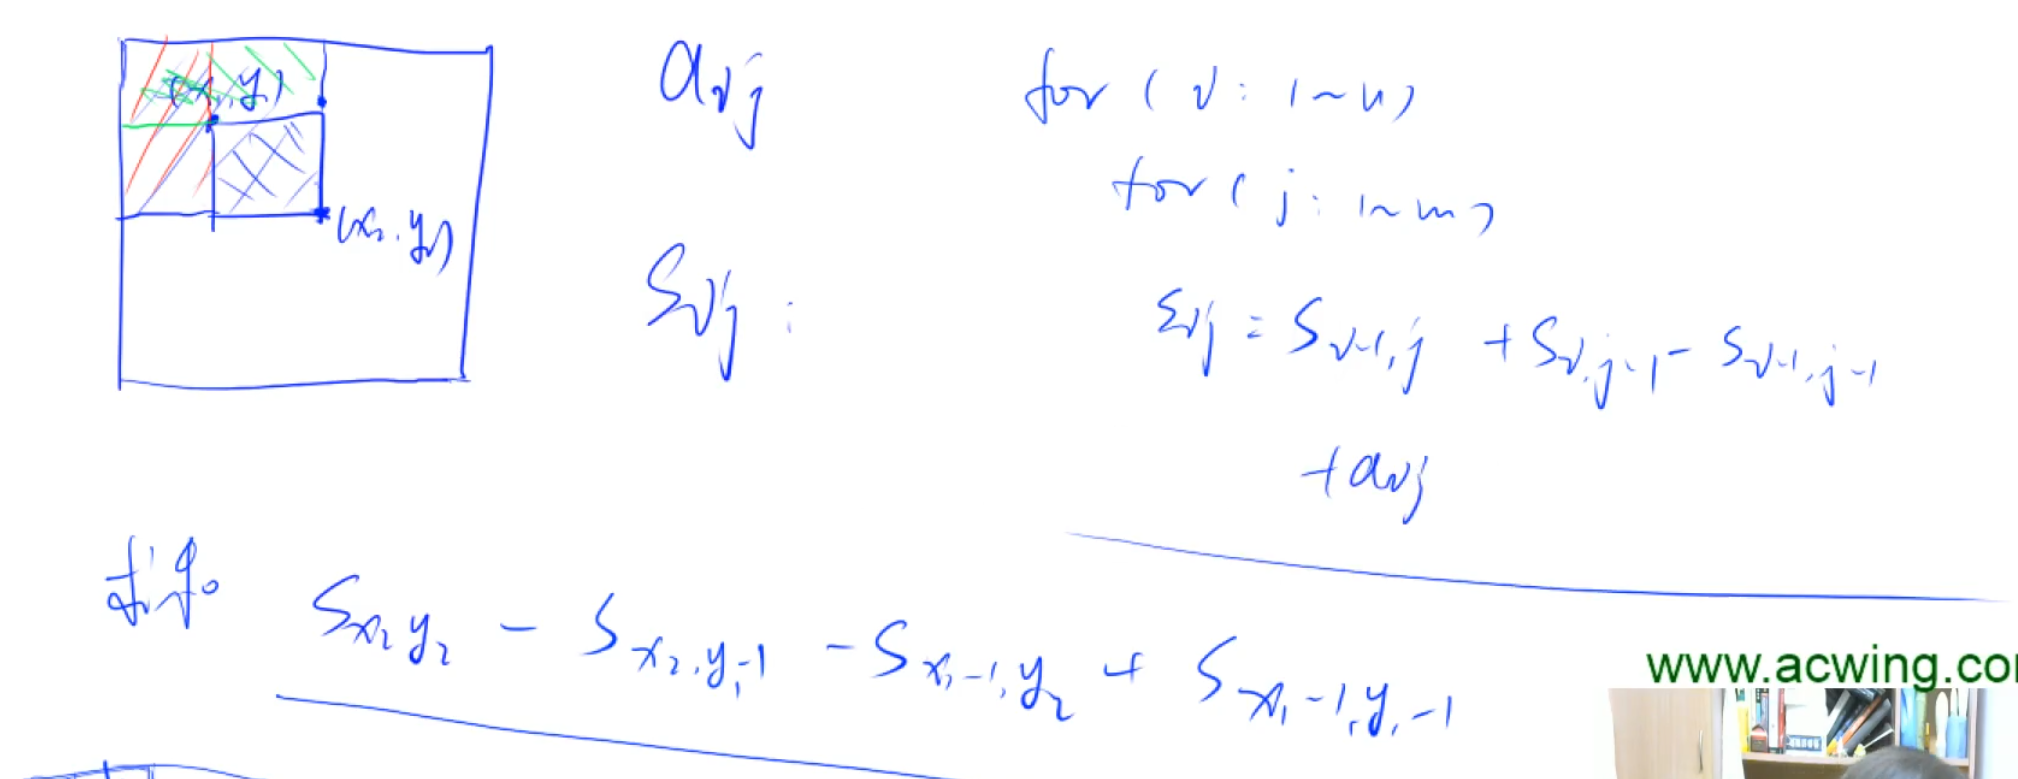 (x₁,y₁)
(x₂,y₂)
aᵢⱼ
for (i: 1~n)
for (j: 1~m)
Sᵢⱼ:
Sᵢⱼ = Sᵢ₋₁,ⱼ + Sᵢ,ⱼ₋₁ - Sᵢ₋₁,ⱼ₋₁
+ aᵢⱼ
S_{x₂y₂} - S_{x₂,y₁-1} - S_{x₁-1,y₂} + S_{x₁-1,y₁-1}
www.acwing.co